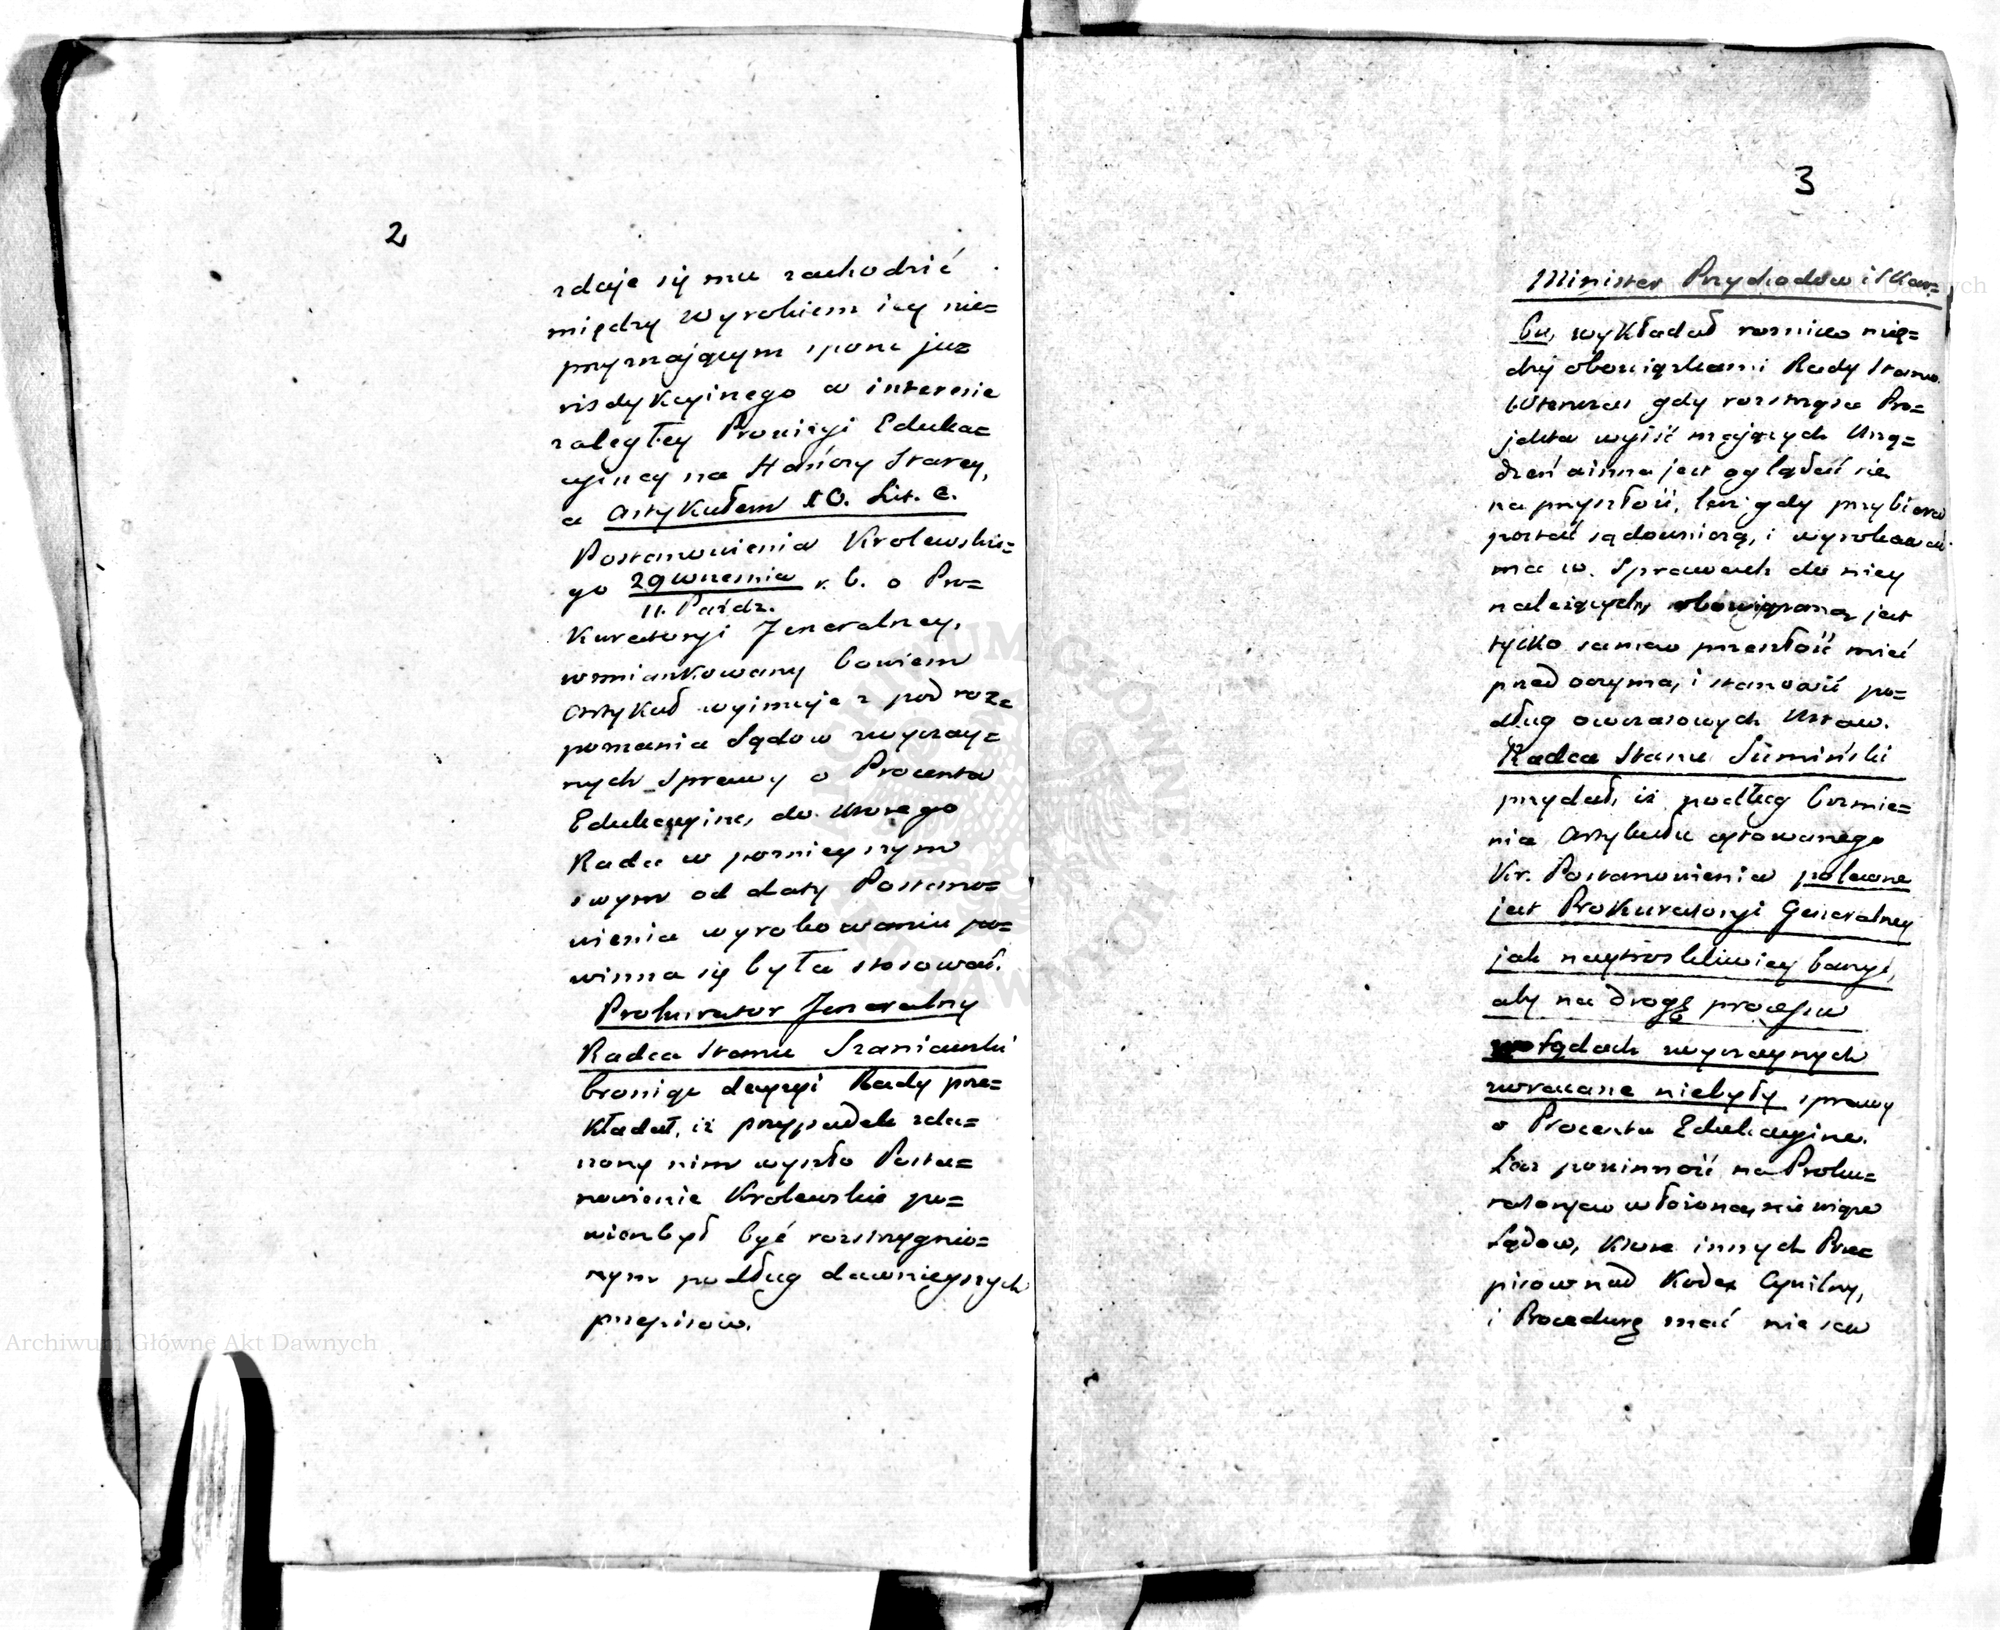 2
zdaje się mu zachodzić
między Wyrokiem iey nie=
przyznającym sporu ju=
risdykcyinego w interesie
zaległey Prowizyi Eduka=
cyiney na Hańczy Starey,
a Artykułem 10. Lit. c.
Postanowienia Krolewskie=
go 29 Września r. b. o Pro=
11. Paźdz.
Kuratoryi Jeneralney,
wzmiankowany bowiem
Artykuł wyimuje z pod roz=
poznania Sądow zwyczay=
nych Sprawy o Procenta
Edukacyine, do Ktorego
Rada w poznieyszym
swym od daty Postano=
wienia wyrokowaniu po=
winna się była stosować.
Prokurator Jeneralny
Radca Stanu Szaniawski
broniąc decyzyi Rady prze=
kładał, iż przypadek zda=
rzony nim wyszło Posta=
nowienie Krolewskie po=
winien był być rozstrzygnio=
nym podług dawnieyszych
przepisow.
3
Minister Przychodów i Skar=
bu, wykładał roznicę mię=
dzy obowiązkami Rady Stanu.
Wtenczas gdy roztrząsa Pro=
jekta wyiść mających Urzą=
dzeń winna jest oglądać sie
na przyszłość, lecz gdy przybiera
postać sądowniczą, i wyrokować
ma w Sprawach do niey
należących, obowiązaną jest
tylko samą przeszłość mieć
przed oczyma, i stanowić po=
dług owczasowych Ustaw.
Radca Stanu Sumiński
przydał, iż podług brzmie=
nia Artykułu cytowanego
Kr. Postanowienia polecone
jest Prokuratoryi Generalney
jak naytroskliwiey baczyć,
aby na drogę processu
w Sądach zwyczaynych
zwracane niebyły sprawy
o Procenta Edukacyine.
Lecz powinność na Proku=
ratoryą włożona, nie wiąże
Sądow, Ktore innych Prze=
pisow nad Kodex Cywilny,
i Procedurę mieć nie są